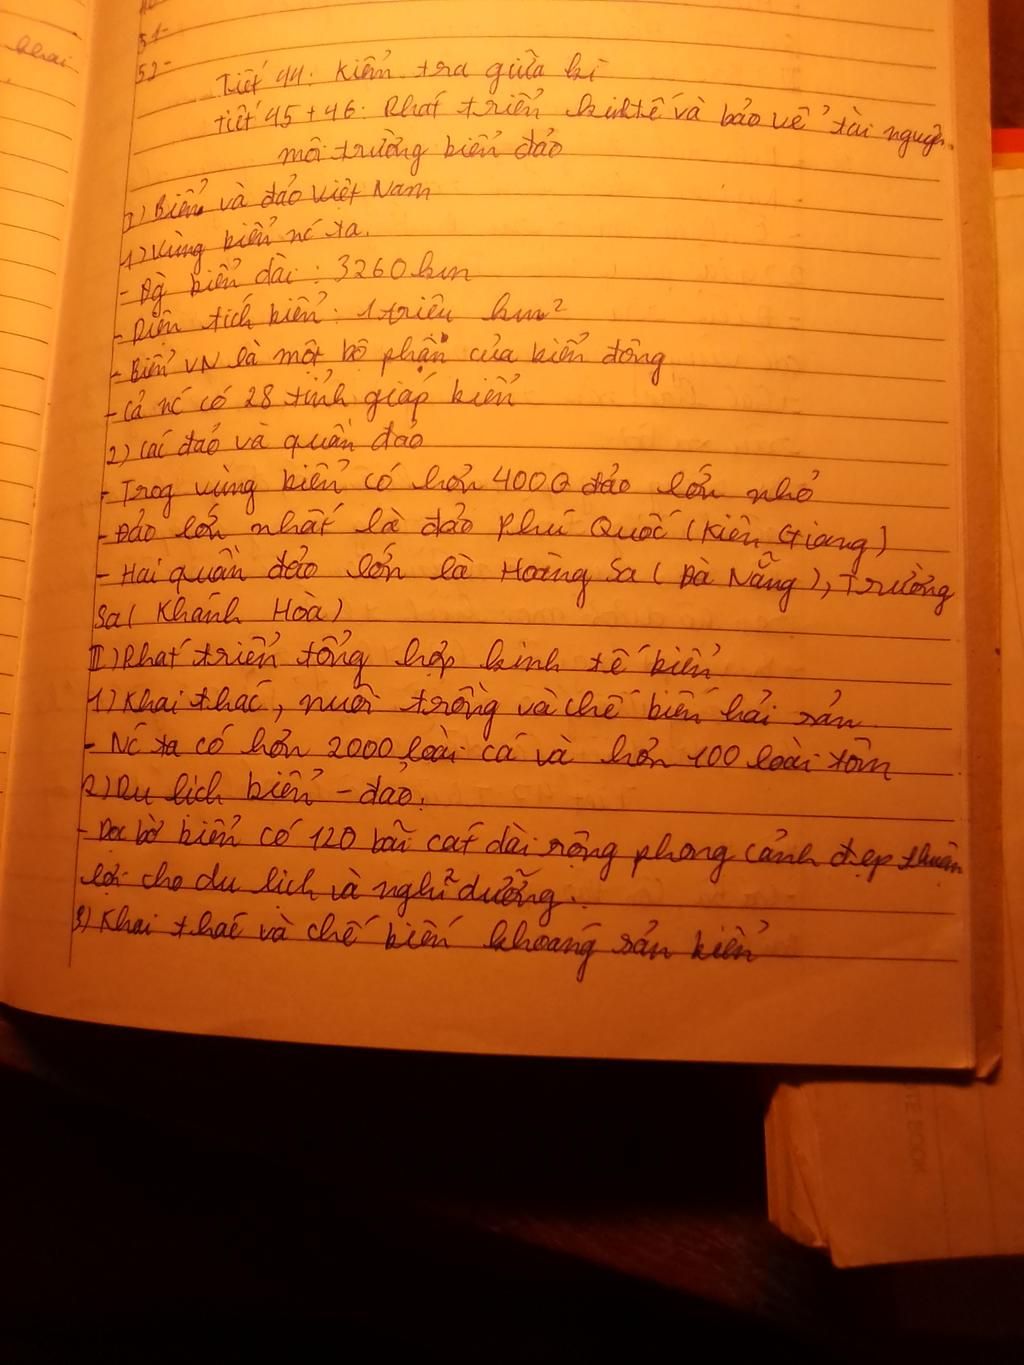 51-
52-
khai
Tiết 44: Kiểm tra giữa kì
Tiết 45+46: Phát triển kinh tế và bảo vệ tài nguyên
môi trường biển đảo
I) Biển và đảo Việt Nam
1) Vùng biển nc ta.
- Bờ biển dài: 3260 km
- Diện tích biển: 1 triệu km²
- Biển VN là một bộ phận của biển đông
- Cả nc có 28 tỉnh giáp biển
2) Các đảo và quần đảo
- Trog vùng biển có hơn 4000 đảo lớn nhỏ
- Đảo lớn nhất là đảo Phú Quốc (Kiên Giang)
- Hai quần đảo lớn là Hoàng Sa (Đà Nẵng), Trường
Sa (Khánh Hòa)
II) Phát triển tổng hợp kinh tế biển
1) Khai thác, nuôi trồng và chế biến hải sản
- Nc ta có hơn 2000 loài cá và hơn 100 loài tôm
2) Du lịch biển - đảo.
- Dọc bờ biển có 120 bãi cát dài rộng phong cảnh đẹp thuận
lợi cho du lịch và nghỉ dưỡng.
3) Khai thác và chế biến khoáng sản biển
TE BOOK